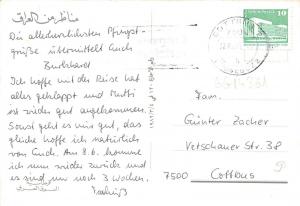 مناظر من العراق
Die allerherzlichsten Pfingst-
grüße übermittelt Euch
Burkhardt
Ich hoffe mit der Reise hat
alles geklappt und Mutti
ist wieder gut angekommen.
Sonst geht es mir gut, das
gleiche hoffe ich natürlich
von Euch. Am 8.6. komme
ich nun wieder zurück und
es sind nur noch 3 Wochen.
10
Fam.
Günter Zacher
Vetschauer Str. 38
7500 Cottbus